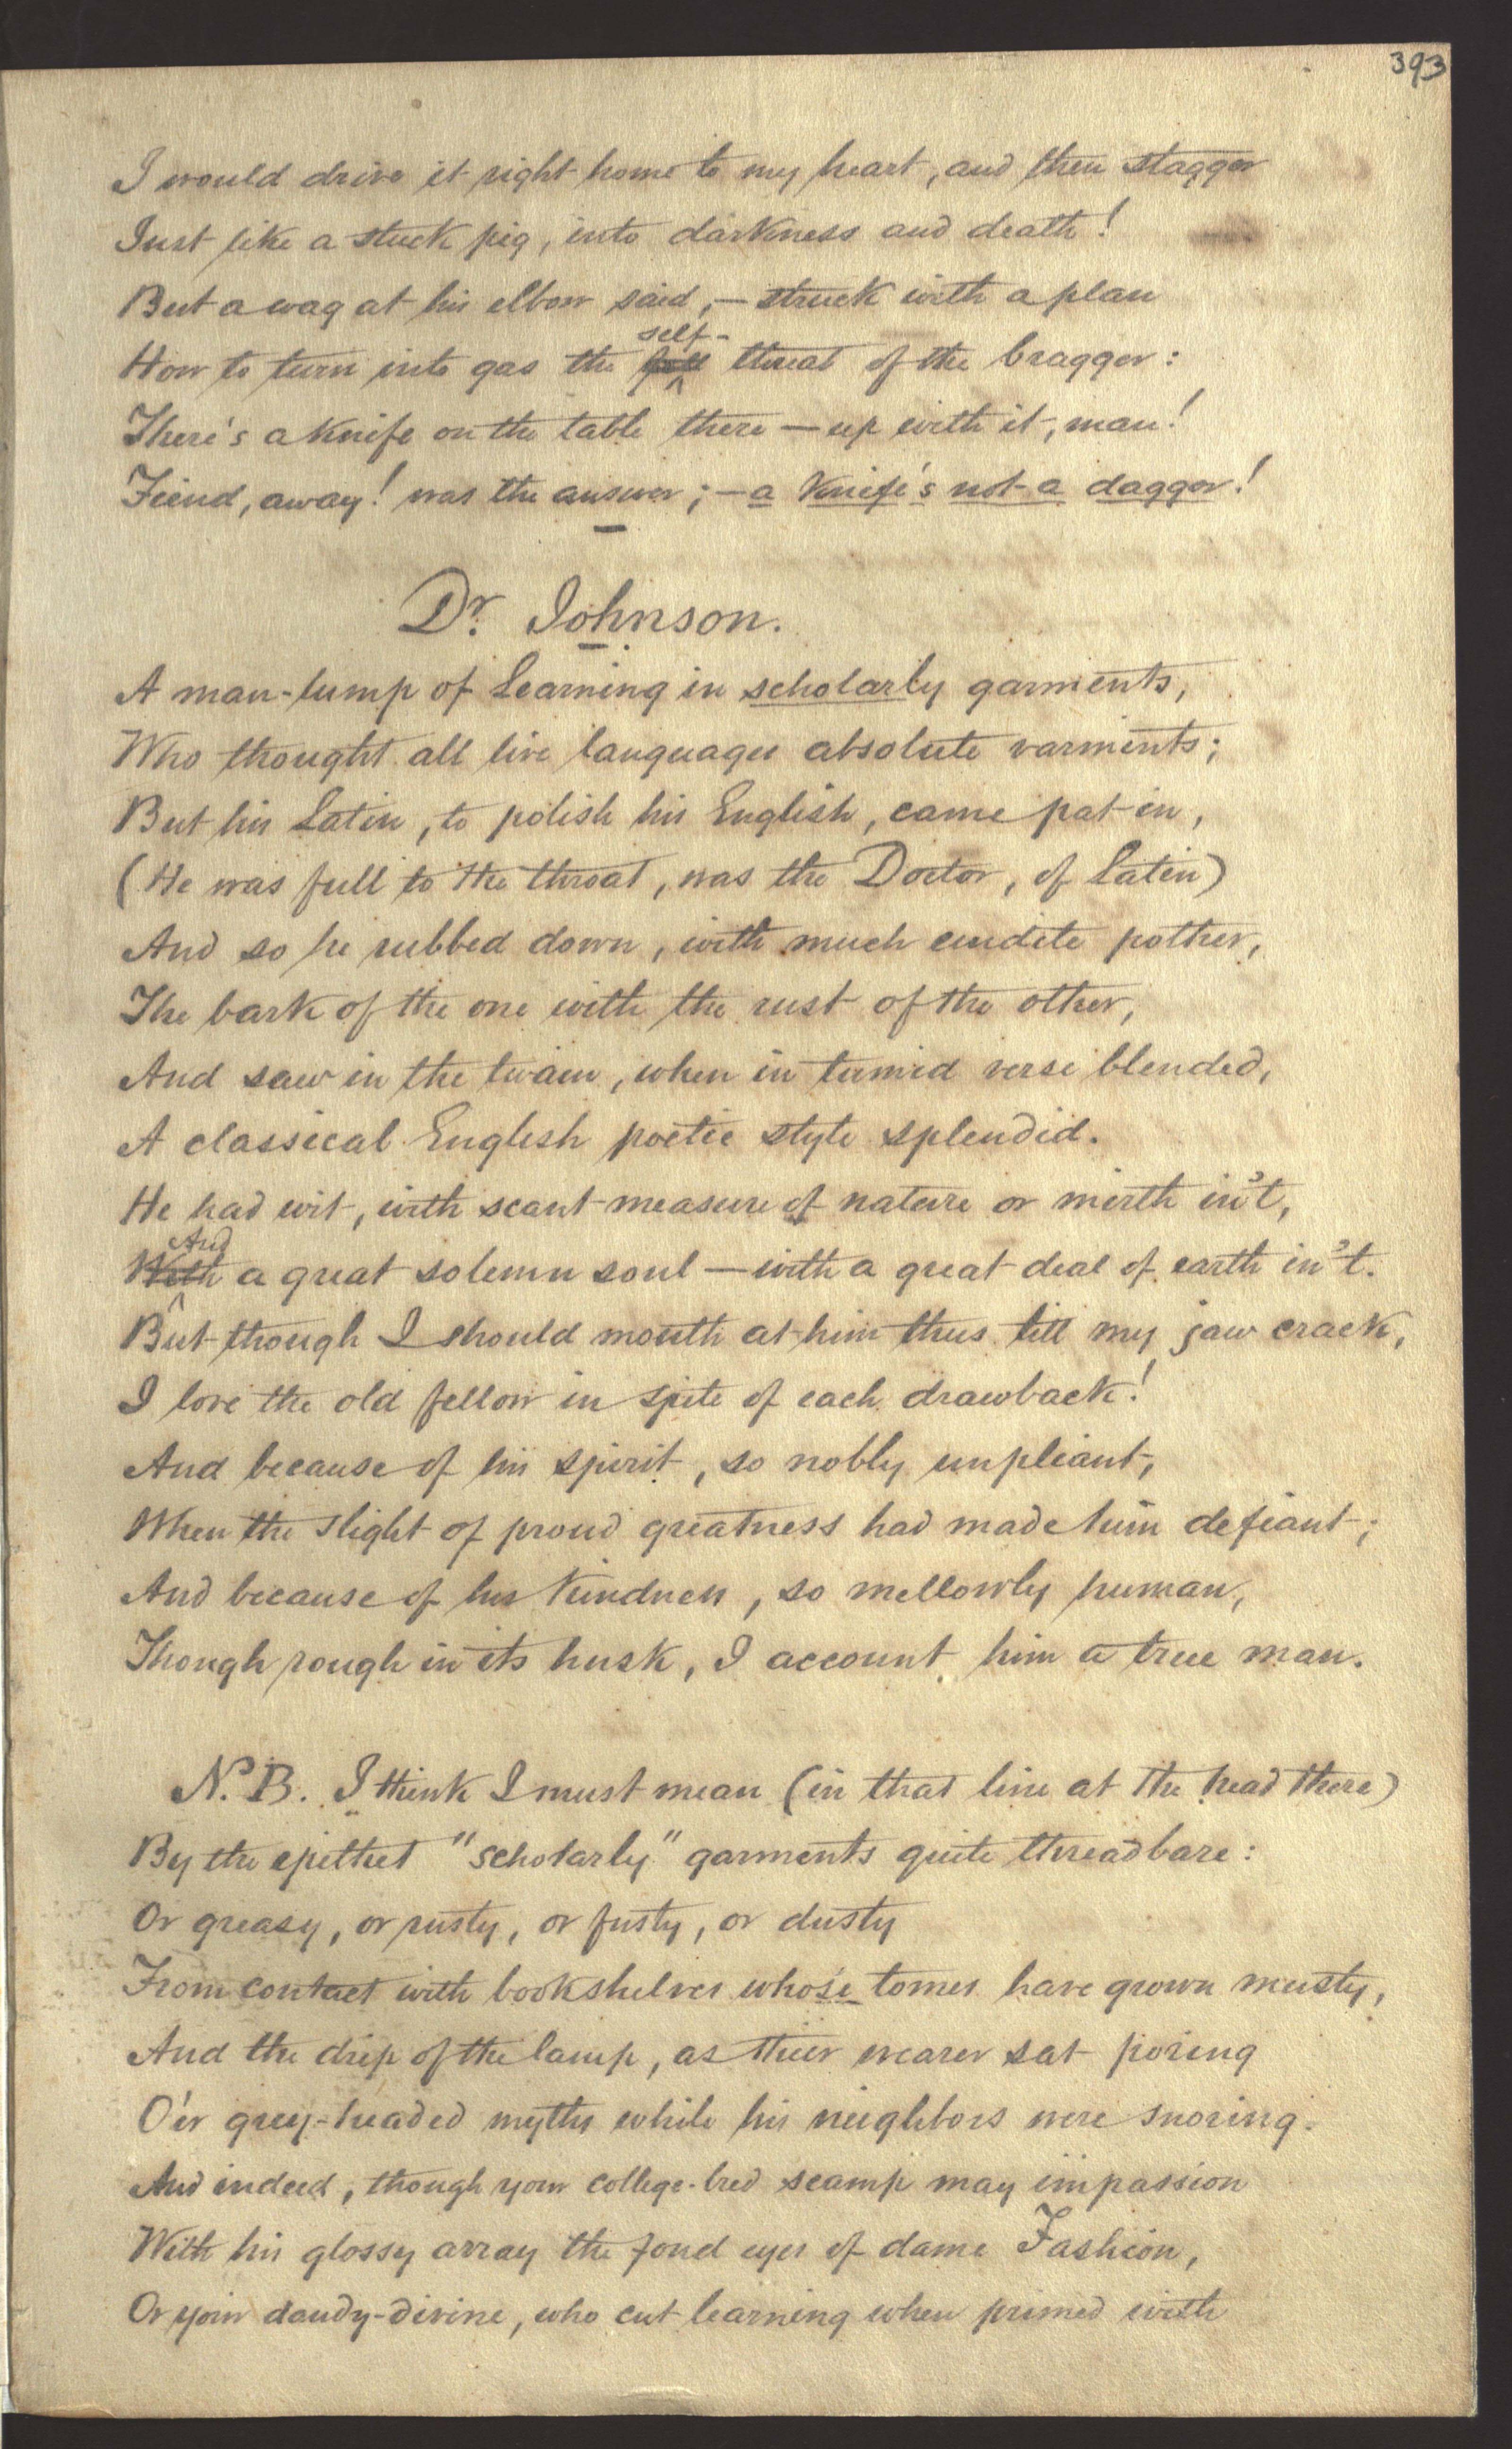 393
I would drive it right home to my heart, and then stagger
Just like a stuck pig, into darkness and death!
But a wag at his elbow said,—struck with a plan
self-
How to turn into gas the fell threat of the bragger:
There's a knife on the table there—up with it, man!
Fiend, away! was the answer;—a knife's not a dagger!
Dr. Johnson.
A man-lump of Learning in scholarly garments,
Who thought all live languages absolute varments;
But his Latin, to polish his English, came pat in,
(He was full to the throat, was the Doctor, of Latin)
And so he rubbed down, with much erudite pother,
The bark of the one with the rust of the other,
And saw in the twain, when in turmid verse blended,
A classical English poetic style splendid.
He had wit, with scant measure of nature or mirth in't,
And
With a great solemn soul—with a great deal of earth in't.
But though I should mouth at him thus till my jaw crack,
I love the old fellow in spite of each drawback!
And because of his spirit, so nobly unpliant,
When the slight of proud greatness had made him defiant;
And because of his kindness, so mellowly human,
Though rough in its husk, I account him a true man.
N.B. I think I must mean (in that line at the head there)
By the epithet "scholarly" garments quite threadbare:
Or greasy, or rusty, or fusty, or dusty
From contact with bookshelves whose tomes have grown musty,
And the drip of the lamp, as their wearer sat poring
O'er grey-headed myths while his neighbors were snoring.
And indeed, though your college-bred scamp may impassion
With his glossy array the fond eyes of dame Fashion,
Or your dandy-divine, who cut learning when primed with